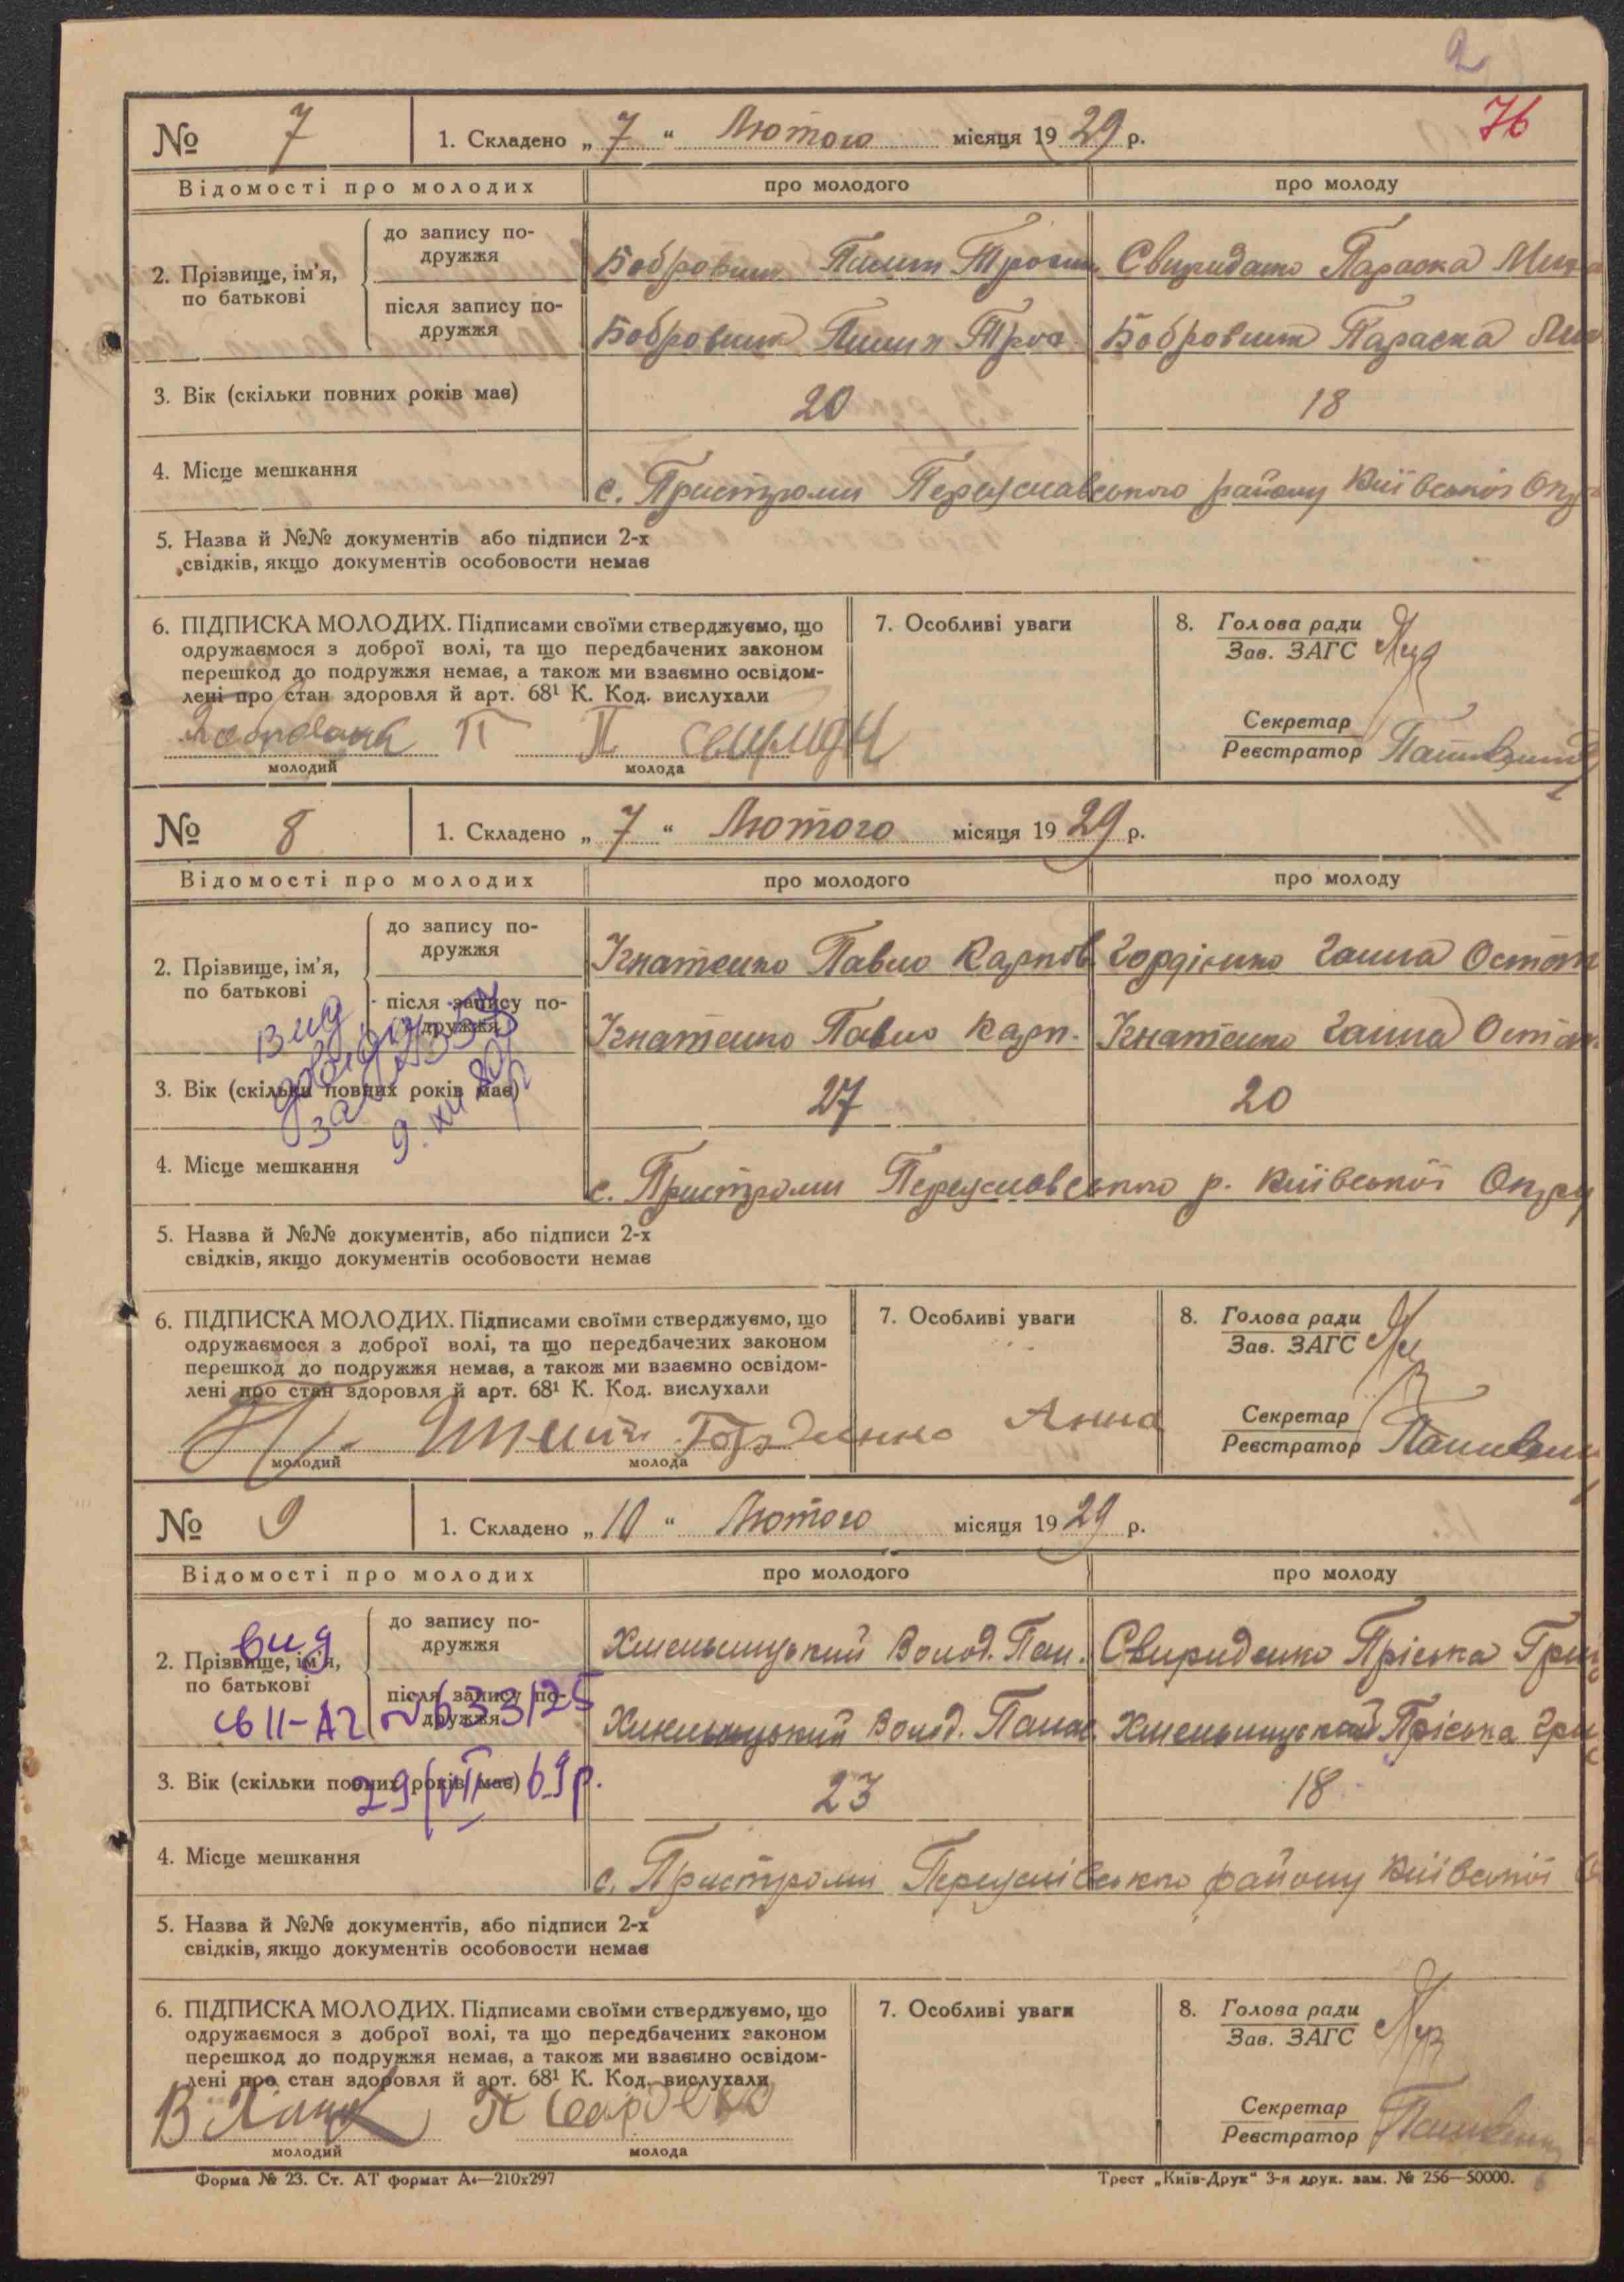 2
76
№ 7 1. Складено „ 7 “ Лютого місяця 19 29 р.
Відомості про молодих про молодого про молоду
2. Прізвище, ім'я, по батькові
до запису подружжя Бобровник Пилип Свириденко Параска
після запису подружжя Бобровник Пилип Троф. Бобровник Параска
3. Вік (скільки повних років має) 20 18
4. Місце мешкання с. Пристроми Переяславського району Київської Окр
5. Назва й №№ документів або підписи 2-х
свідків, якщо документів особовости немає
6. ПІДПИСКА МОЛОДИХ. Підписами своїми стверджуємо, що
одружаємося з доброї волі, та що передбачених законом
перешкод до подружжя немає, а також ми взаємно освідом-
лені про стан здоровля й арт. 68¹ К. Код. вислухали
7. Особливі уваги
8. Голова ради
Зав. ЗАГС
Секретар
Реєстратор
П П
молодий молода
№ 8 1. Складено „ 7 “ Лютого місяця 19 29 р.
Відомості про молодих про молодого про молоду
2. Прізвище, ім'я, по батькові
до запису подружжя Ігнатенко Павло Карпов Гордієнко Ганна Остап
після запису подружжя Ігнатенко Павло Карп. Ігнатенко Ганна Остап
3. Вік (скільки повних років має) 27 20
4. Місце мешкання с. Пристроми Переяславського р. Київської Окру
5. Назва й №№ документів, або підписи 2-х
свідків, якщо документів особовости немає
6. ПІДПИСКА МОЛОДИХ. Підписами своїми стверджуємо, що
одружаємося з доброї волі, та що передбачених законом
перешкод до подружжя немає, а також ми взаємно освідом-
лені про стан здоровля й арт. 68¹ К. Код. вислухали
7. Особливі уваги
8. Голова ради
Зав. ЗАГС
Секретар
Реєстратор
Анна
молодий молода
№ 9 1. Складено „ 10 “ Лютого місяця 19 29 р.
Відомості про молодих про молодого про молоду
2. Прізвище, ім'я, по батькові
до запису подружжя Хмельницький Волод. Пан. Свириденко Пріська Гри
після запису подружжя Хмельницький Волод. Панас. Хмельницькая Пріська Гри
вид
св II-АГ № 633125
29/VII 69р.
3. Вік (скільки повних років має) 23 18
4. Місце мешкання с. Пристроми району Київської
5. Назва й №№ документів, або підписи 2-х
свідків, якщо документів особовости немає
6. ПІДПИСКА МОЛОДИХ. Підписами своїми стверджуємо, що
одружаємося з доброї волі, та що передбачених законом
перешкод до подружжя немає, а також ми взаємно освідом-
лені про стан здоровля й арт. 68¹ К. Код. вислухали
7. Особливі уваги
8. Голова ради
Зав. ЗАГС
Секретар
Реєстратор
молодий молода
Форма № 23. Ст. АТ формат А₄—210х297 Трест „Київ-Друк“ 3-я друк. зам. № 256—50000.